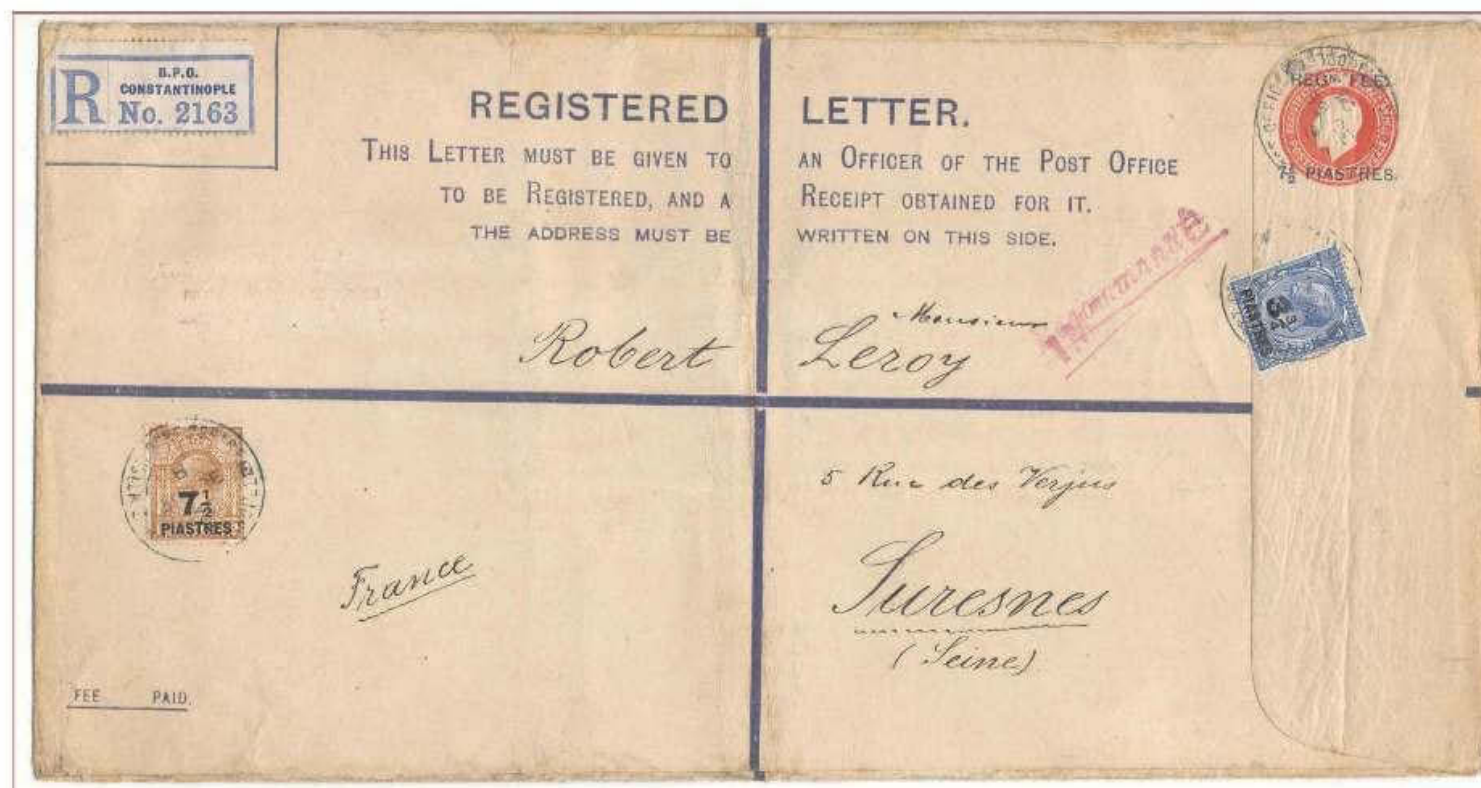 R
B.P.O.
CONSTANTINOPLE
No. 2163
REGISTERED LETTER.
THIS LETTER MUST BE GIVEN TO AN OFFICER OF THE POST OFFICE
TO BE REGISTERED, AND A RECEIPT OBTAINED FOR IT.
THE ADDRESS MUST BE WRITTEN ON THIS SIDE.
REGN. FEE
7½ PIASTRES.
3¾
PIASTRES
Monsieur
Robert Leroy
7½
PIASTRES
5 Rue des Verjus
France
Suresnes
(Seine)
FEE PAID.